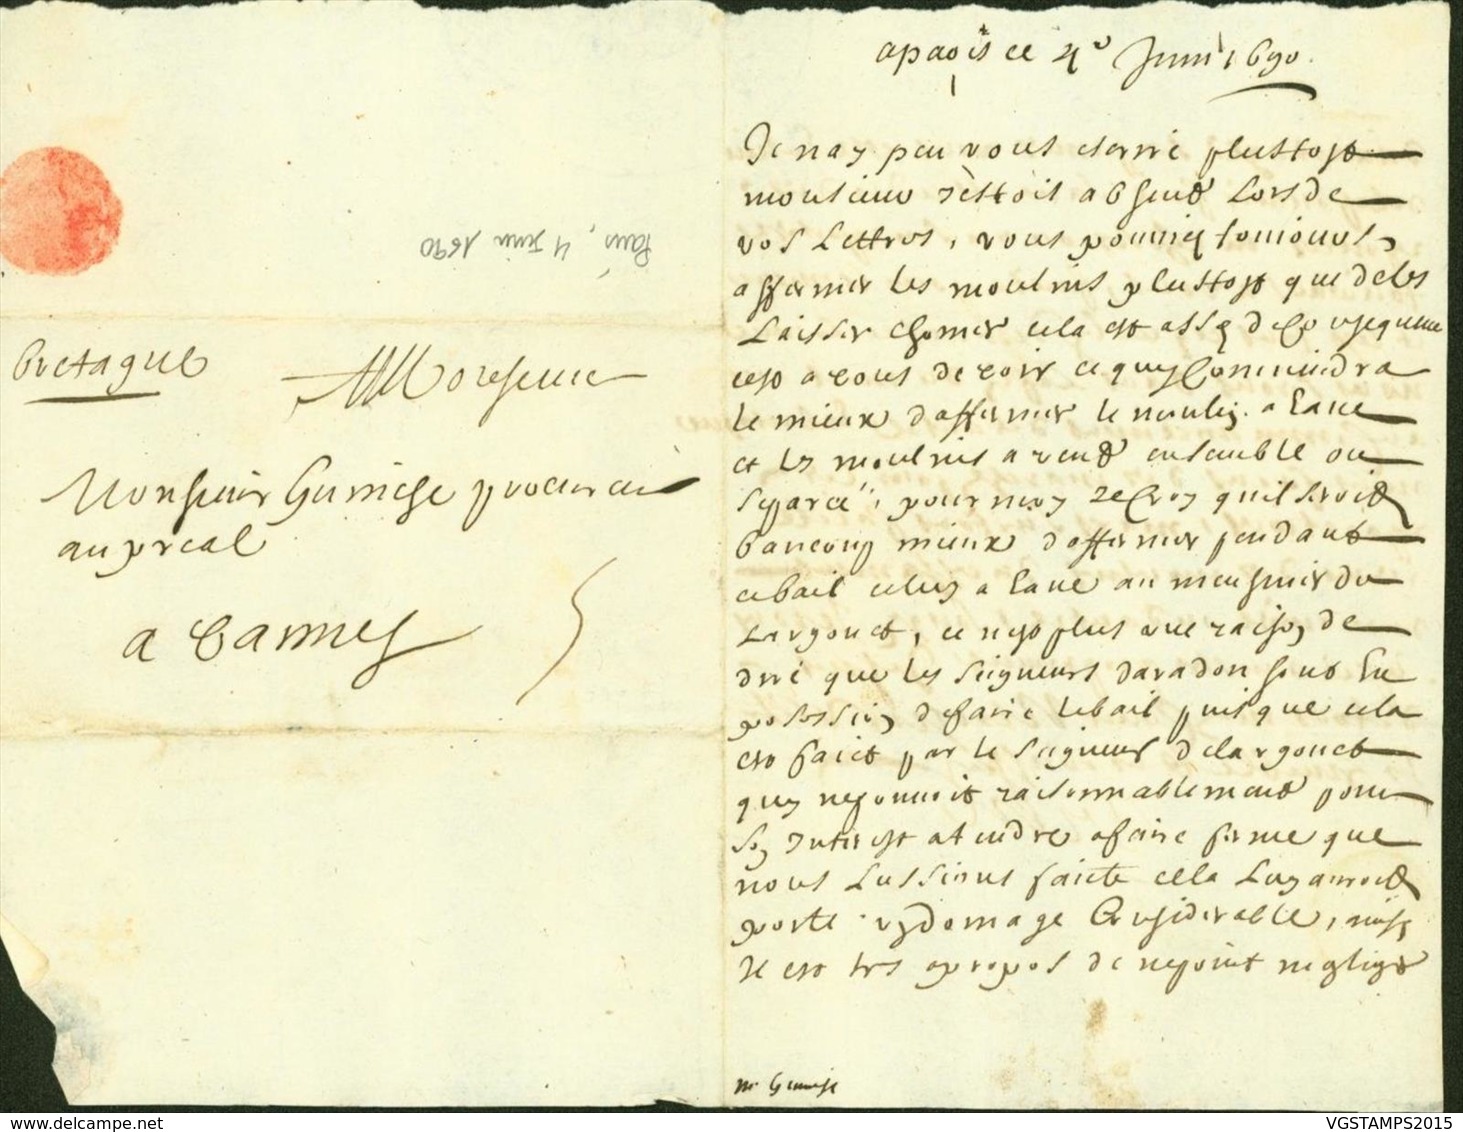 Bretagne
Monsieur
Monsieur Guimese procureur
au preal
a Vannes
Paris, 4 Juin 1690
a paris ce 4e Juin 1690.
Je nay peu vous escrire plustost
monsieur jestois absent lors de
vos lettres, vous pouuiez tousiours
affermer les moulins plustost que de les
laisser chomer cela est assez de consequence
cest a vous de voir ce quy conuiendra
le mieux daffermer le moulin a eaue
et les moulins a vent ensemble ou
separé, pour moy je croy quil seroit
baucoup mieux daffermer pendant
ce bail celuy a eaue au meusnier de
Largouet, ce nest plus vne raison de
dire que les seigneurs daradon sont en
possession de faire le bail puisque cela
est faict par le seigneur de largouet
quy ne pouuoit raisonnablement pour
son interest atendre a faire ferme que
nous lussions faicte cela luy auroit
porté vn domage considerable, ainsy
il est tres apropos de ne point negliger
mr Guimese
VGSTAMPS2015